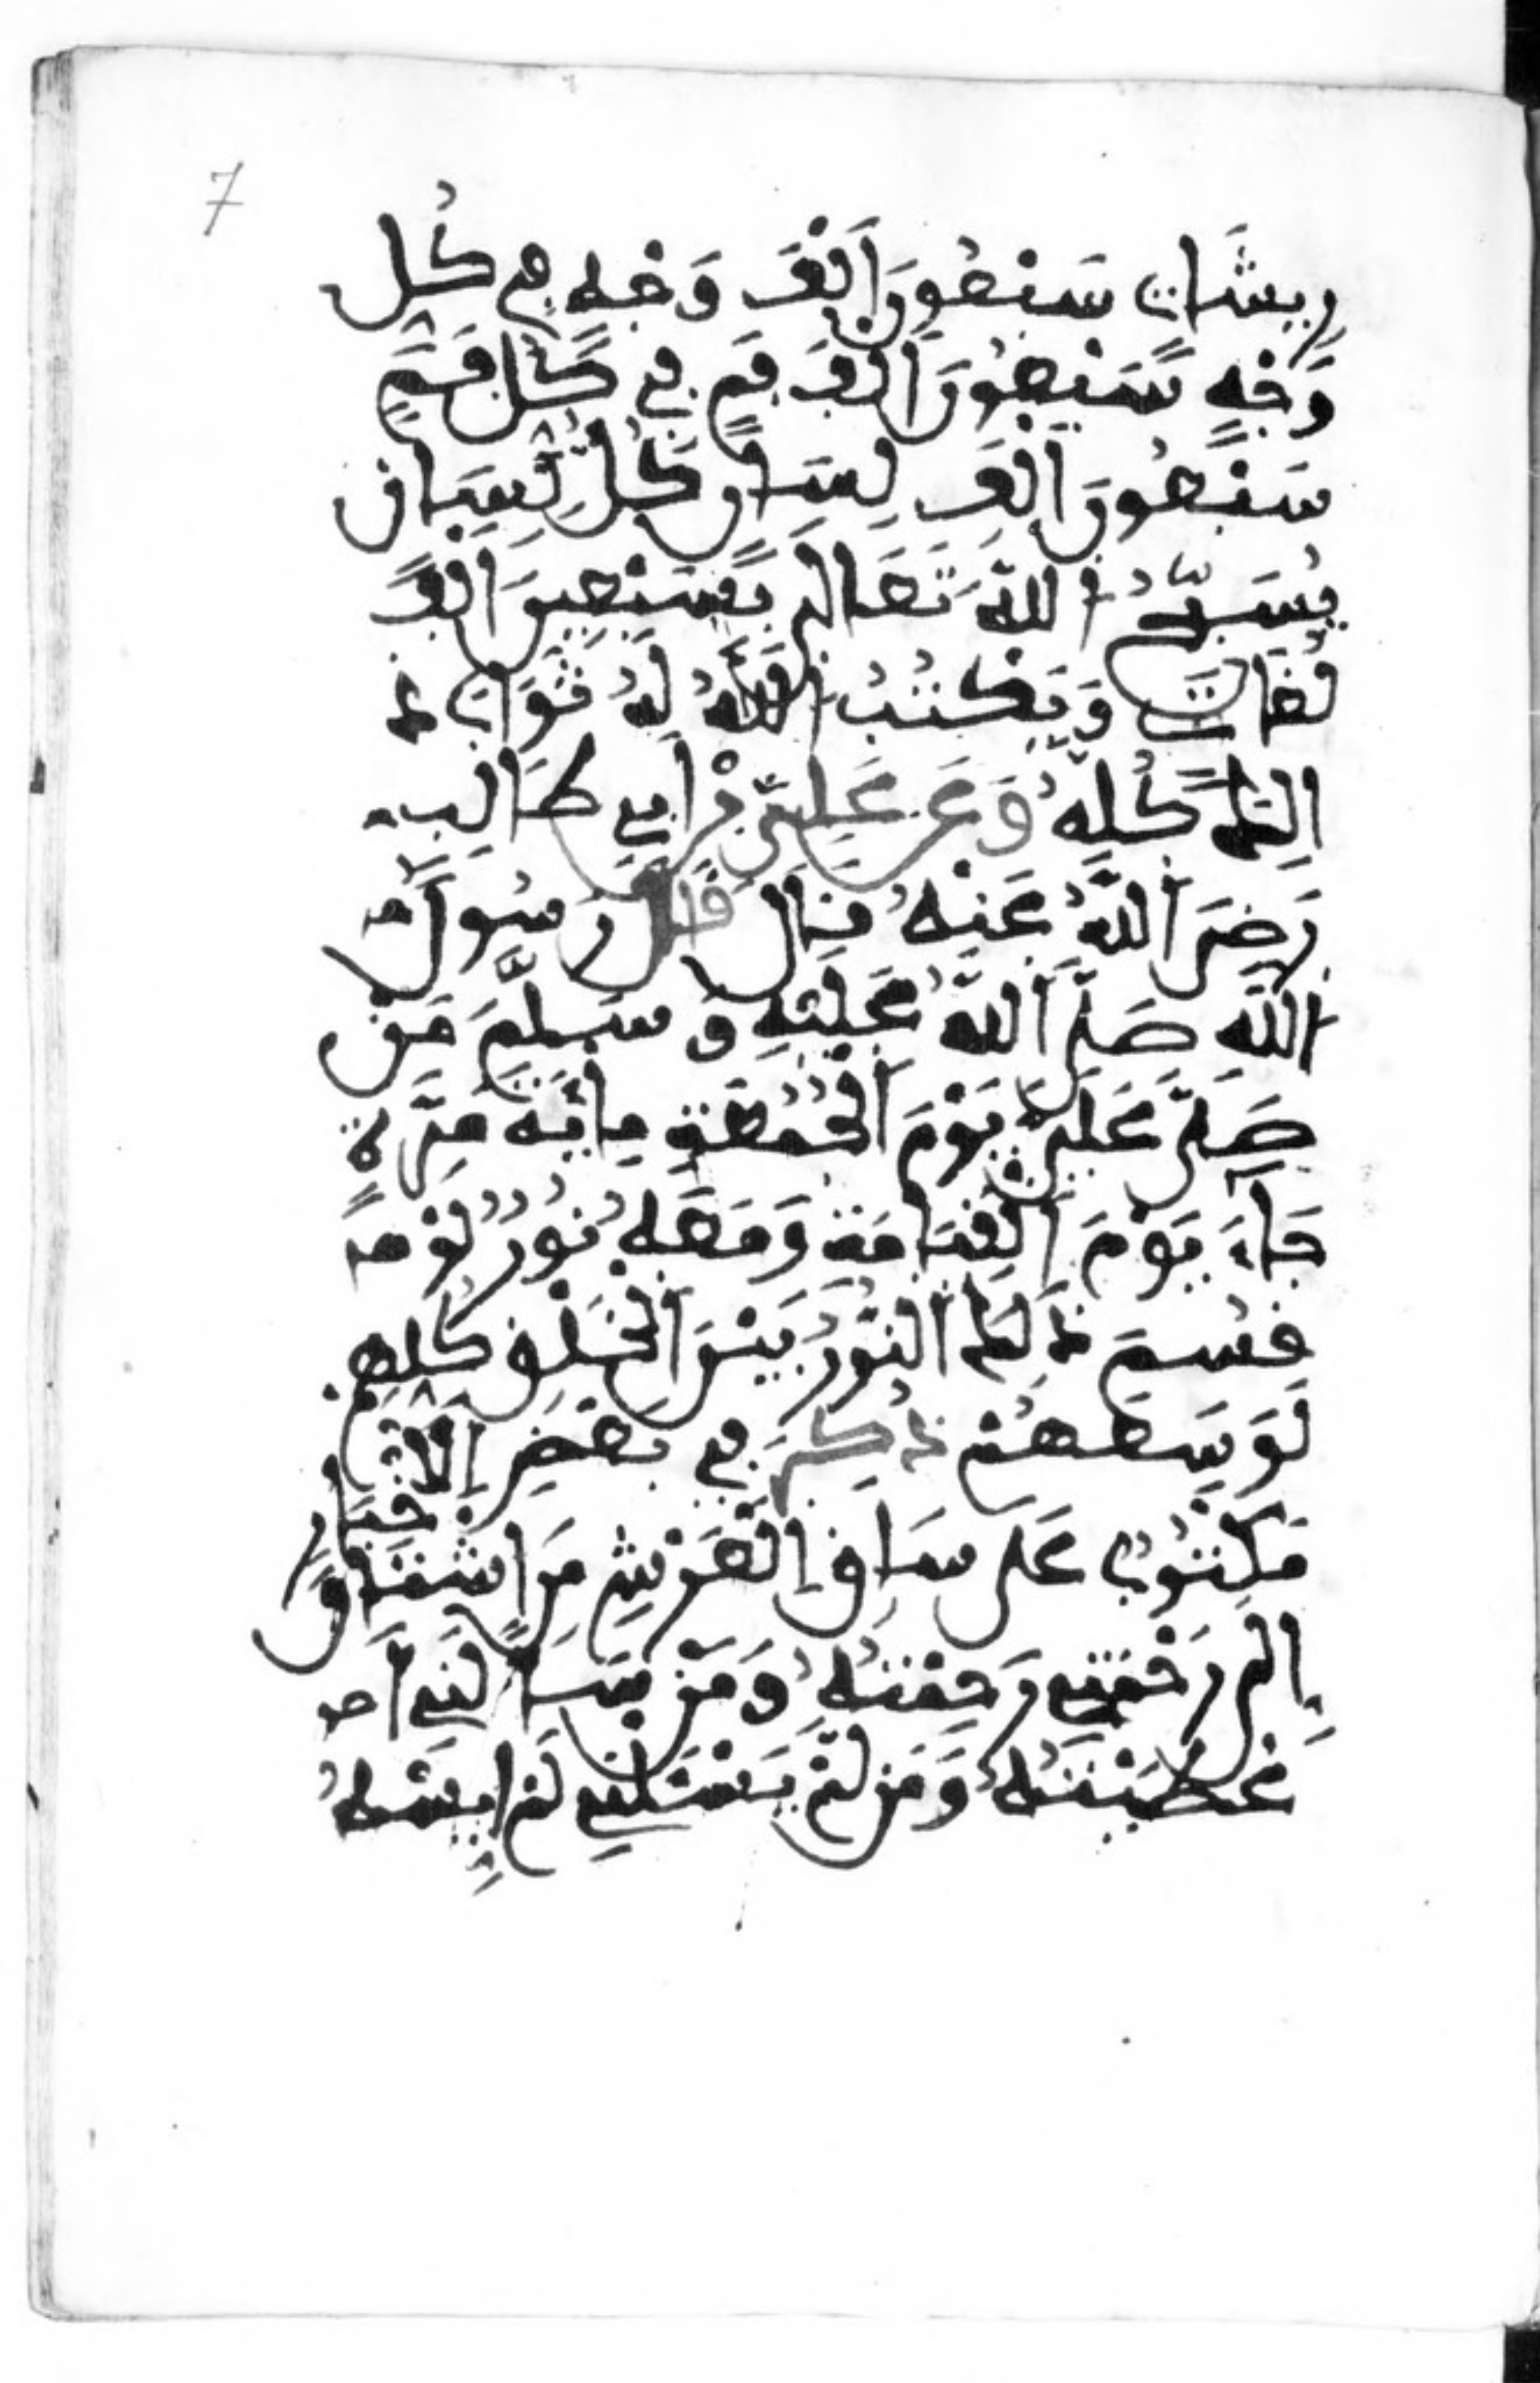 7
رِيشَاتٍ سَبْعُونَ أَلْفَ وَجْهٍ فِي كُلِّ
وَجْهٍ سَبْعُونَ أَلْفَ فَمٍ فِي كُلِّ فَمٍ
سَبْعُونَ أَلْفَ لِسَانٍ كُلُّ لِسَانٍ
يُسَبِّحُ اللَّهَ تَعَالَى بِسَبْعِينَ أَلْفَ
لُغَاتٍ وَيَكْتُبُ اللَّهُ لَهُ ثَوَابَ ذَ
الِكَ كُلِّهِ وَعَنْ عَلِيِّ بْنِ أَبِي طَالِبٍ
رَضِيَ اللَّهُ عَنْهُ قَالَ قَالَ رَسُولُ
اللَّهِ صَلَّى اللَّهُ عَلَيْهِ وَسَلَّمَ مَنْ
صَلَّى عَلَيَّ يَوْمَ الْجُمُعَةِ مِائَةَ مَرَّةٍ
جَاءَ يَوْمَ الْقِيَامَةِ وَمَعَهُ نُورٌ لَوْ
قُسِمَ ذَلِكَ النُّورُ بَيْنَ الْخَلْقِ كُلِّهِمْ
لَوَسِعَهُمْ ذُكِرَ فِي بَعْضِ الْأَخْبَارِ
مَكْتُوبٌ عَلَى سَاقِ الْعَرْشِ مَنِ اشْتَاقَ
إِلَى رَحْمَتِي رَحِمْتُهُ وَمَنْ سَأَلَنِي أَ
عْطَيْتُهُ وَمَنْ لَمْ يَسْئَلْنِي لَمْ